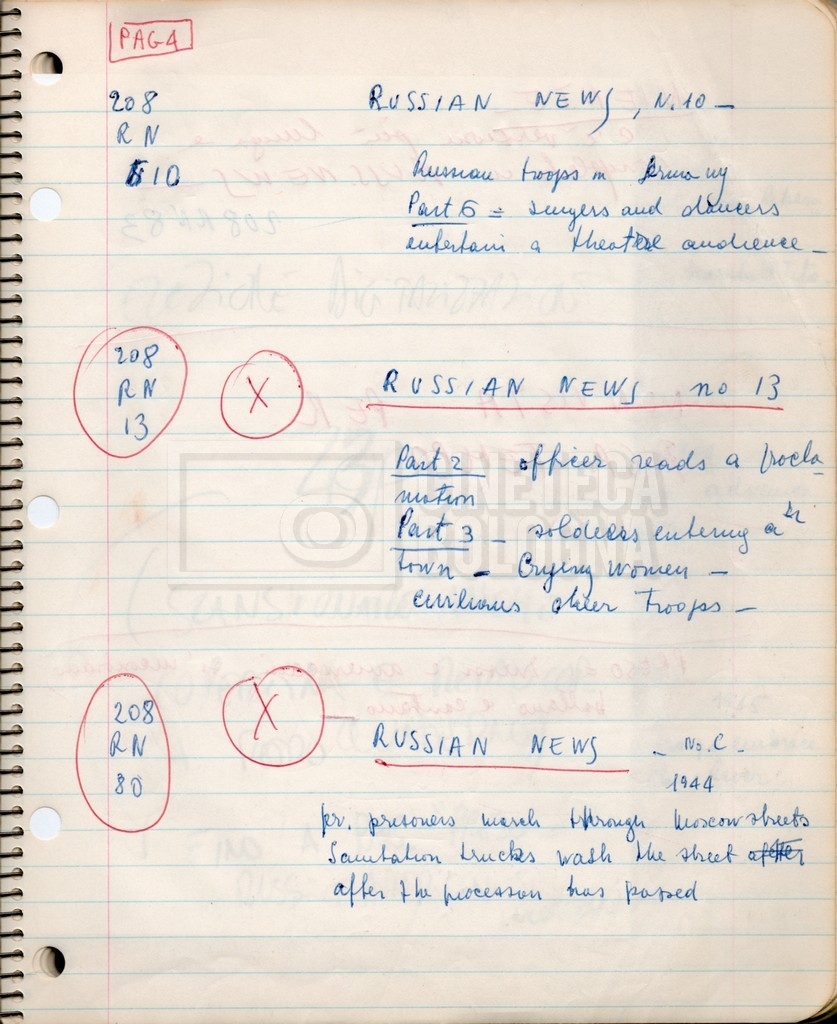 PAG 4
208
RN
10
RUSSIAN NEWS, N.10 —
Russian troops in
Part 6 = singers and dancers
entertain a theatre audience —
208
RN
13
X
RUSSIAN NEWS no 13
Part 2 officer reads a procla-
mation
Part 3 — soldiers entering a
town — Crying women —
civilians cheer troops —
CINETECA
BOLOGNA
208
RN
80
X
RUSSIAN NEWS — No. C —
1944
prisoners march through Moscow streets
Sanitation trucks wash the street after
after the procession has passed